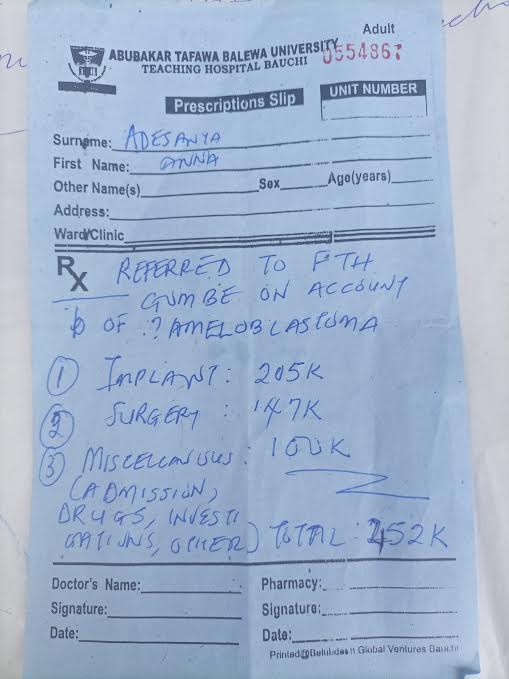 Adult
ABUBAKAR TAFAWA BALEWA UNIVERSITY
0554867
TEACHING HOSPITAL BAUCHI
Prescriptions Slip
UNIT NUMBER
Surname: ADESANYA
First Name: ANNA
Other Name(s) Sex Age(years)
Address:
Ward/Clinic
Rx REFERRED TO FTH
GUMBE ON ACCOUNT
OF .? AMELOBLASTOMA
1 IMPLANT: 205K
2 SURGERY: 147K
3 MISCELLANUUS: 100K
(ADMISSION,
DRUGS, INVESTI
GATIONS, OTHER) TOTAL: 452K
Doctor's Name: Pharmacy:
Signature: Signature:
Date: Date:
Printed@ Global Ventures Bauchi